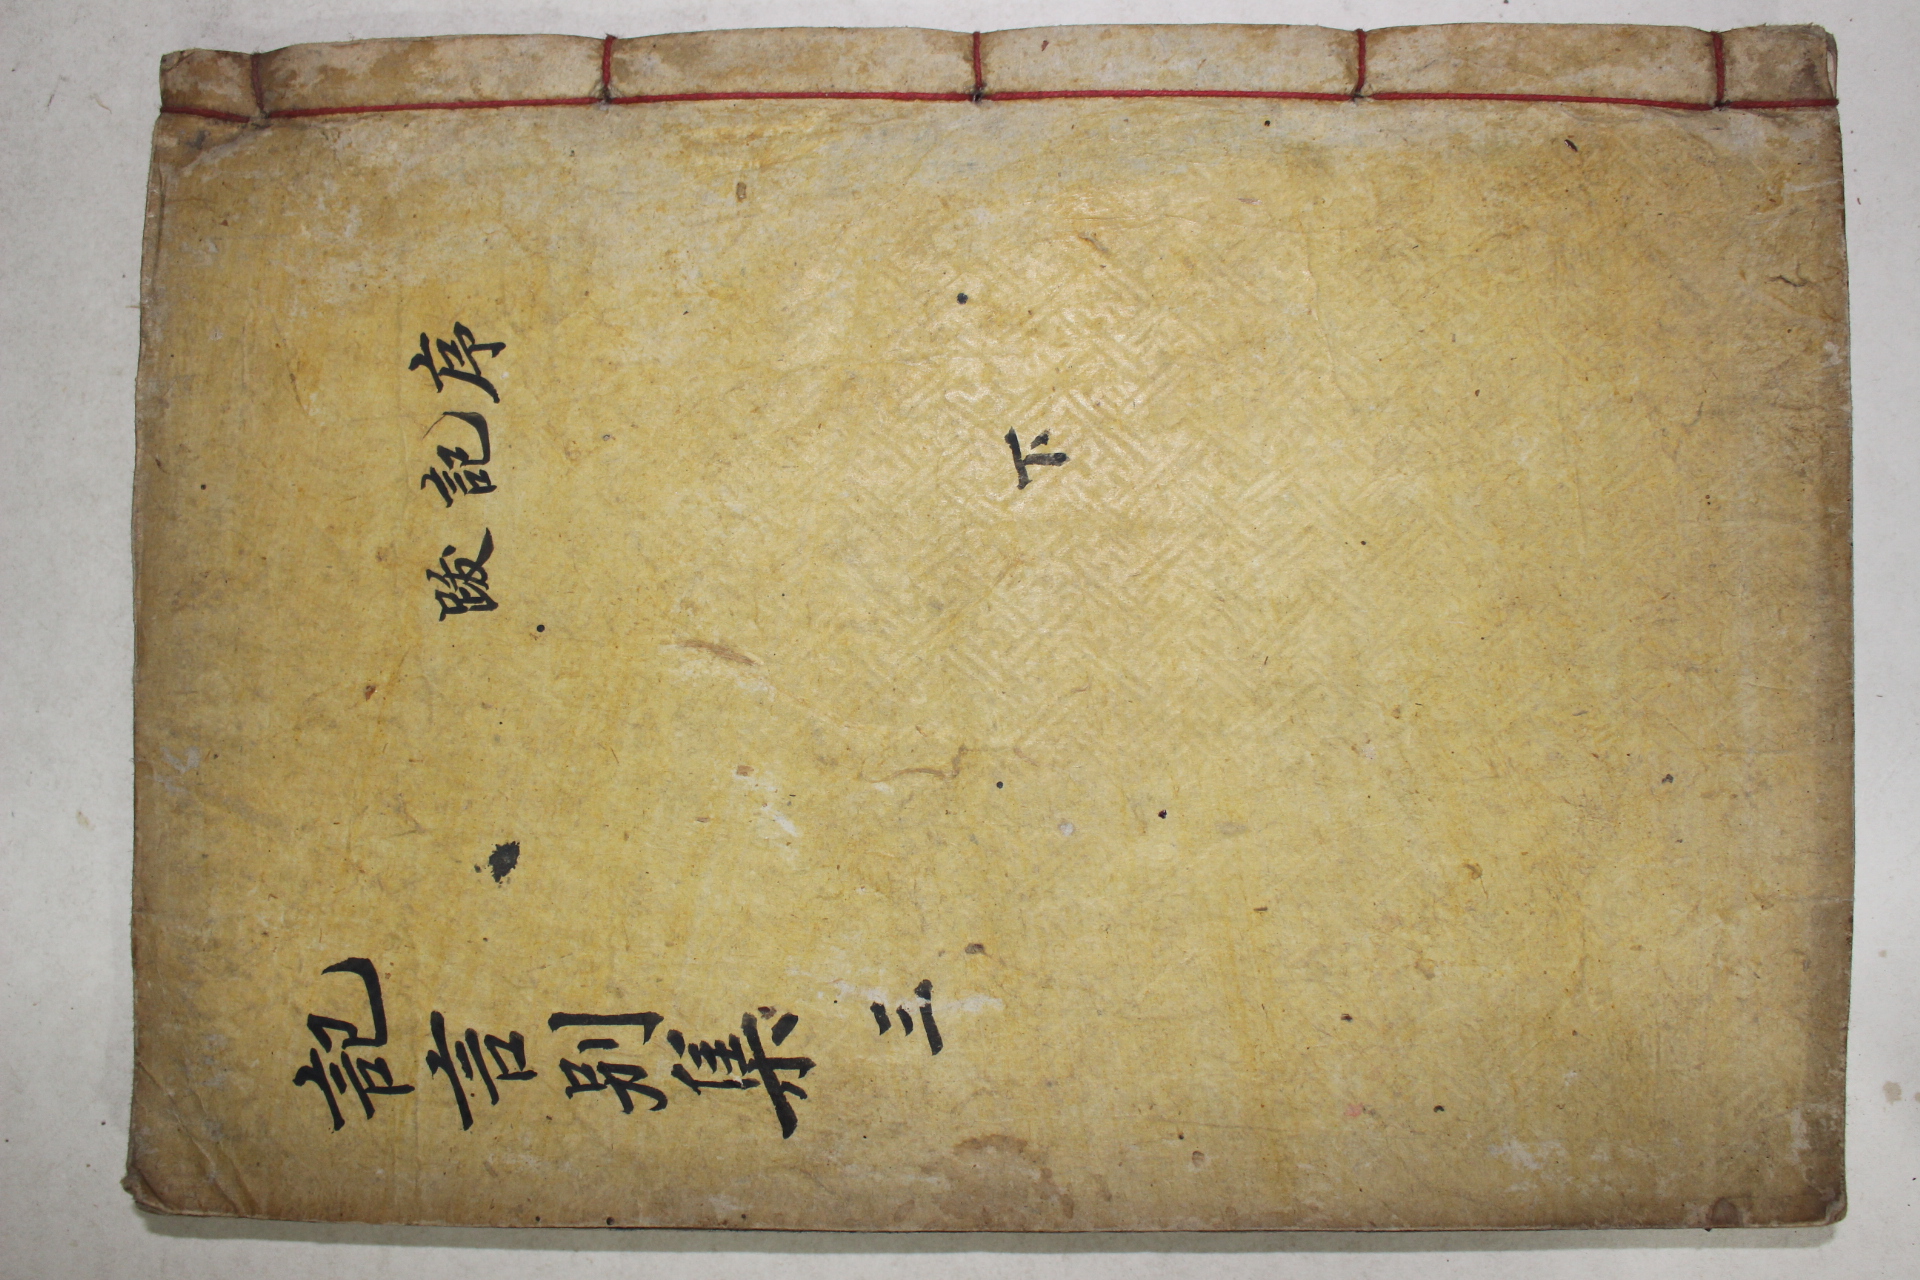 序記跋
下
記言別集 三